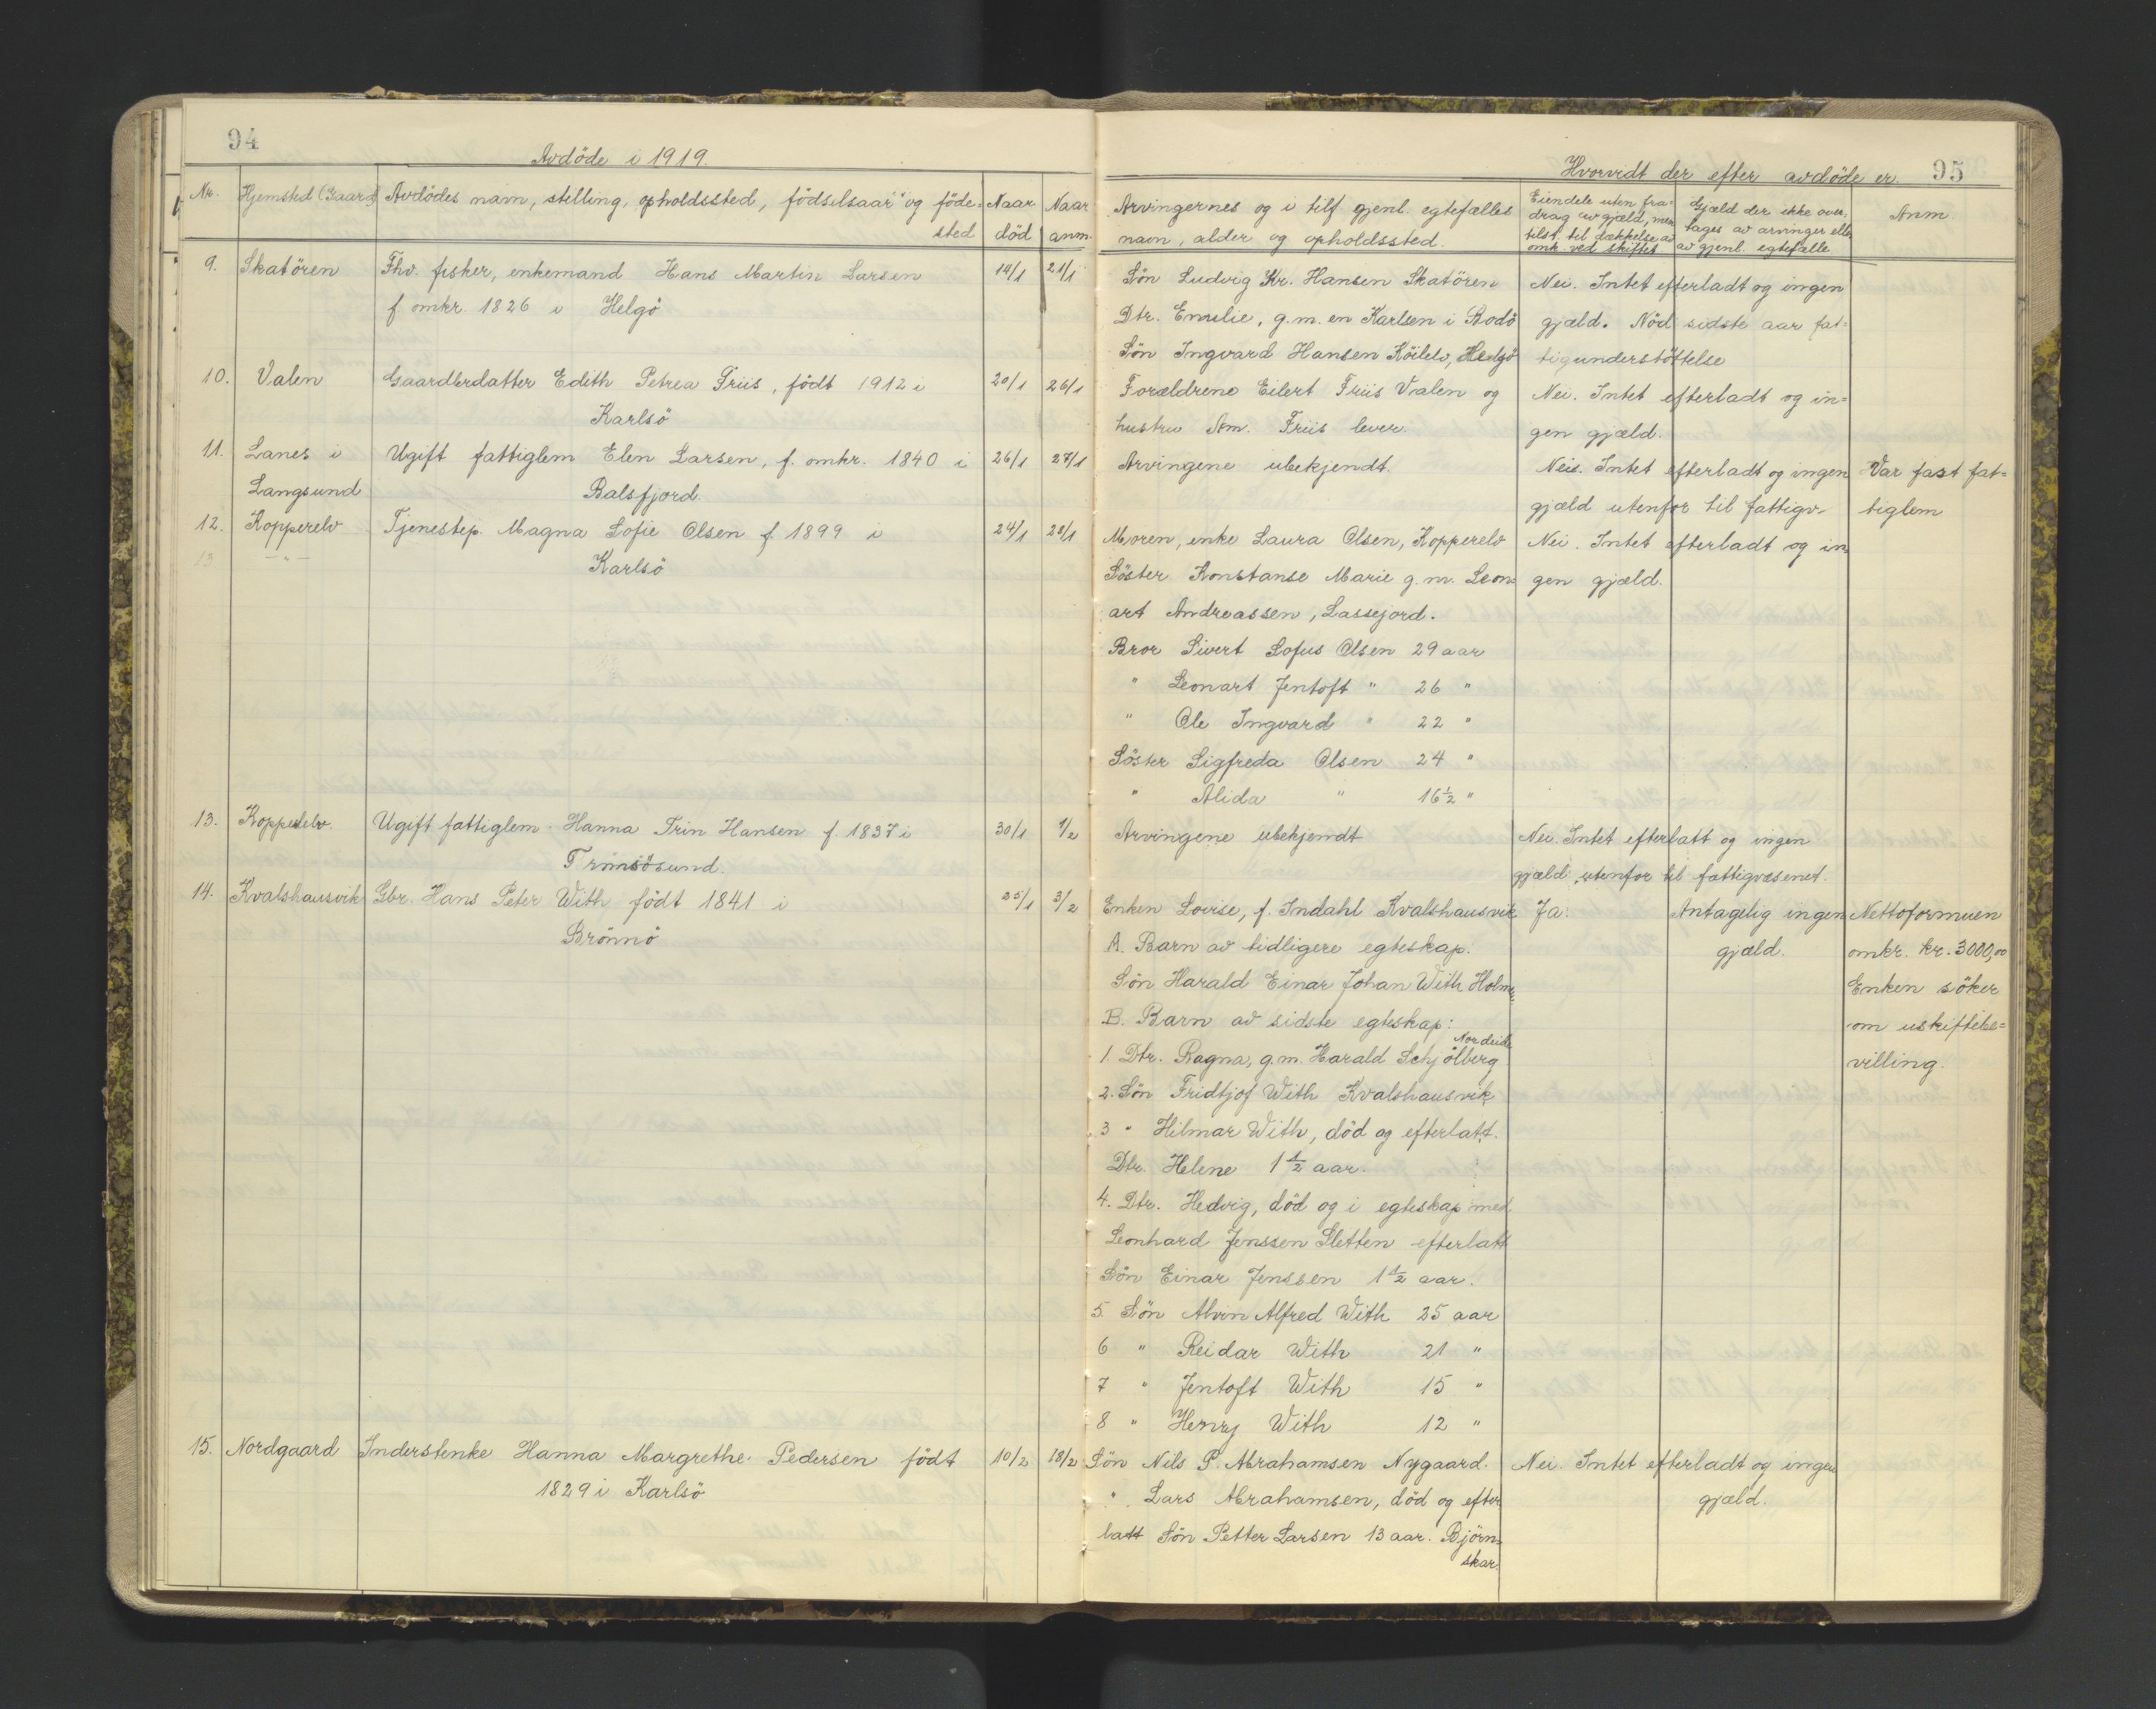 94
Avdöde i 1919.
Nr. Hjemsted (Gaard) Avdödes navn, stilling, opholdssted, födselsaar og föde= Naar Naar
sted död anm.
9. Skatören Fhv. fisker, enkemand Hans Martin Larsen 14/1 21/1
f omkr. 1826 i Helgö
10. Valen Gaardbrdatter Edith Petrea Friis, födt 1912 i 20/1 26/1
Karlsö
11. Lanes i Ugift fattiglem Elen Larsen, f. omkr. 1840 i 26/1 27/1
Langsund Balsfjord.
12. Kopperelv Tjenestep. Magna Sofie Olsen f. 1899 i 24/1 28/1
13 - " - Karlsö
13. Koppelelv. Ugift fattiglem Hanna Trin Hansen f. 1837 i 30/1 1/2
Tromsösund.
14. Kvalshausvik Gbr. Hans Peter With födt 1841 i 25/1 3/2
Brönnö
15. Nordgaard Inderstenke Hanna Margrethe Pedersen födt 10/2 18/2
1829 i Karlsö
95
Hvorvidt der efter avdöde er.
Arvingernes og i tilf gjenl. egtefælles
navn, alder og opholdssted.
Eiendele uten fra=
drag av gjæld, men
tilst. til dækkelse av
omk. ved skiftet
Gjæld der ikke over,
tages av arvinger eller
av gjenl. egtefælle
Anm.
Sön Ludvig Kr. Hansen Skatören Nei. Intet efterladt og ingen
Dtr. Emilie, g.m. en Karlsen i Bodö gjæld. Nöd sidste aar fat=
Sön Ingvard Hansen Köilelv, Helgö tigunderstöttelse
Forældrene Eilert Friis Valen og Nei. Intet efterladt og in=
hustru Am. Friis lever. gen gjæld.
Arvingene ubekjendt. Nei. Intet efterladt og ingen Var fast fat=
gjæld utenfor til fattigv- tiglem
Moren, enke Laura Olsen, Kopperelv Nei. Intet efterladt og in
Söster Konstanse Marie g.m. Leon= gen gjæld.
art Andreassen, Lassejord.
Bror Sivert Sofus Olsen 29 aar
" Leonart Jentoft " 26 "
" Ole Ingvard " 22 "
Söster Sigfreda Olsen 24 "
" Alida " 16 1/2 "
Arvingene ubekjendt Nei. Intet efterlatt og ingen
gjæld utenfor til fattigvæsenet.
Enken Lovise, f. Indahl Kvalshausvik Ja: Antagelig ingen Nettoformuen
A. Barn av tidligere egteskap: gjæld. omkr. kr. 3000,00
Sön Harald Einar Johan With Holm Enken söker
B. Barn av sidste egteskap: om uskiftebe=
Nordeide
1. Dtr. Ragna, g.m. Harald Schjölberg villing.
2. Sön Fridtjof With Kvalshausvik
3 " Hilmar With, död og efterlatt.
Dtr. Helene 1 1/2 aar.
4. Dtr. Hedvig, död og i egteskap med
Leonhard Jenssen Sletten efterlatt
Sön Einar Jenssen 1 1/2 aar.
5. Sön Alvin Alfred With 25 aar
6 " Reidar With 21 "
7 " Jentoft With 15 "
8 " Henry With 12 "
Sön Nils P. Abrahamsen Nygaard. Nei. Intet efterladt og ingen
" Lars Abrahamsen, död og efter gjæld.
latt Sön Petter Larsen 13 aar. Björn=
skar.